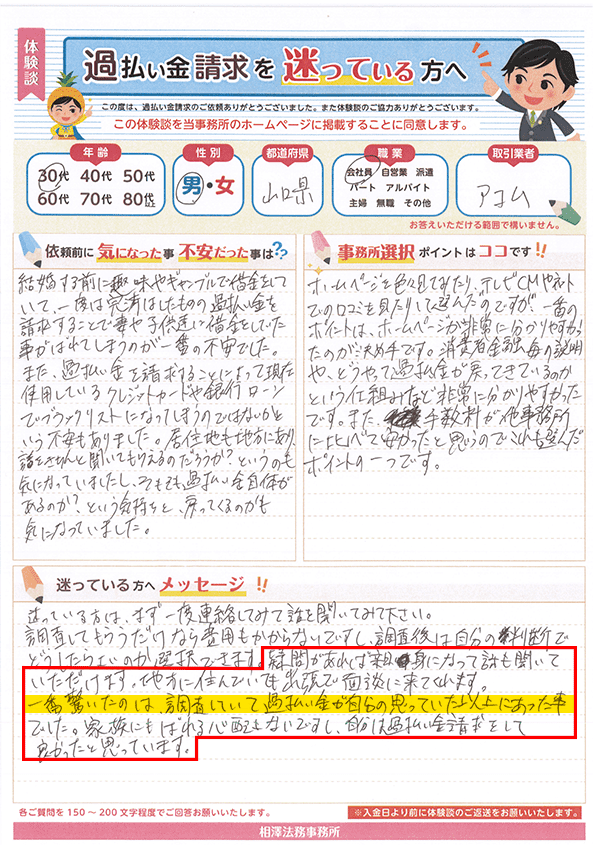 体験談
過払い金請求を迷っている方へ
この度は、過払い金請求のご依頼ありがとうございました。また体験談のご協力ありがとうございます。
この体験談を当事務所のホームページに掲載することに同意します。
年齢
30代 40代 50代
60代 70代 80代以上
性別
男・女
都道府県
山口県
職業
会社員 自営業 派遣
パート アルバイト
主婦 無職 その他
取引業者
アコム
お答えいただける範囲で構いません。
依頼前に気になった事 不安だった事は??
結婚する前に趣味やギャンブルで借金をして
いて、一度は完済はしたものの過払い金を
請求することで妻や子供達に借金をしていた
事がばれてしまうのが一番の不安でした。
また、過払い金を請求することによって現在
使用しているクレジットカードや銀行ローン
でブラックリストになってしまうのではないかと
いう不安もありました。居住地も地方にあり、
話をきちんと聞いてもらえるのだろうか?というのも
気になっていましたし、そもそも過払い金自体が
あるのか?という気持ちと、戻ってくるのかも
気になっていました。
事務所選択ポイントはココです!!
ホームページを色々見てみたり、テレビCMやネット
での口コミを見たりして選んだのですが、一番の
ポイントは、ホームページが非常に分かりやすかっ
たのが決め手です。消費者金融毎の説明
や、どうやって過払金が戻ってきているのか
という仕組みなど非常に分かりやすかった
です。また、手数料が他事務所
に比べて安かったと思うのでこれも選んだ
ポイントの一つです。
迷っている方へメッセージ!!
迷っている方は、まず一度連絡してみて話を聞いてみて下さい。
調査してもらうだけなら費用もかからないですし、調査後は自分の判断で
どうしたらよいのか選択できます。疑問があれば親身になって話も聞いて
いただけます。地方に住んでいても出張で面談に来てくれます。
一番驚いたのは、調査していて過払い金が自分の思っていた以上にあった事
でした。家族にもばれる心配もないですし、自分は過払い金請求をして
良かったと思っています。
各ご質問を150～200文字程度でご回答お願いいたします。
※入金日より前に体験談のご返送をお願いいたします。
相澤法務事務所